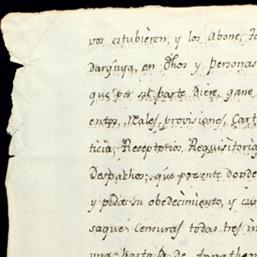 vos estubieren, y los Abone, Ta
Darguya, en dhos y personas
que por su parte diere, gane
entos, Reales, provisiones, Cart
ticia, Receptorias, Requisitoria
Despachos; que presente donde
y pida su obedecimiento, y cum
saque Censuras todas tres in
una hasta la de Anathem